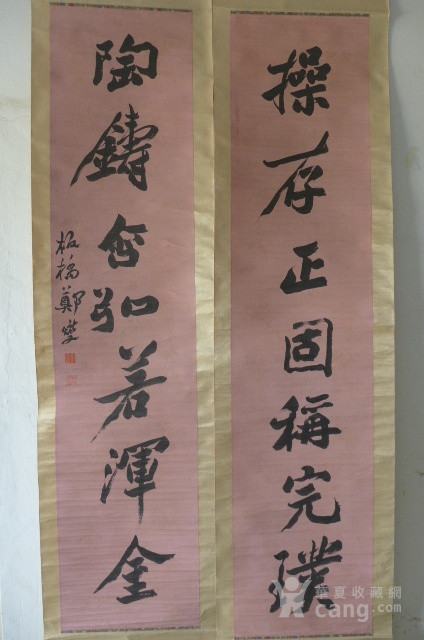 操存正固稱完璞
陶鑄含弘若渾金
板橋鄭燮
華夏收藏網
cang.com